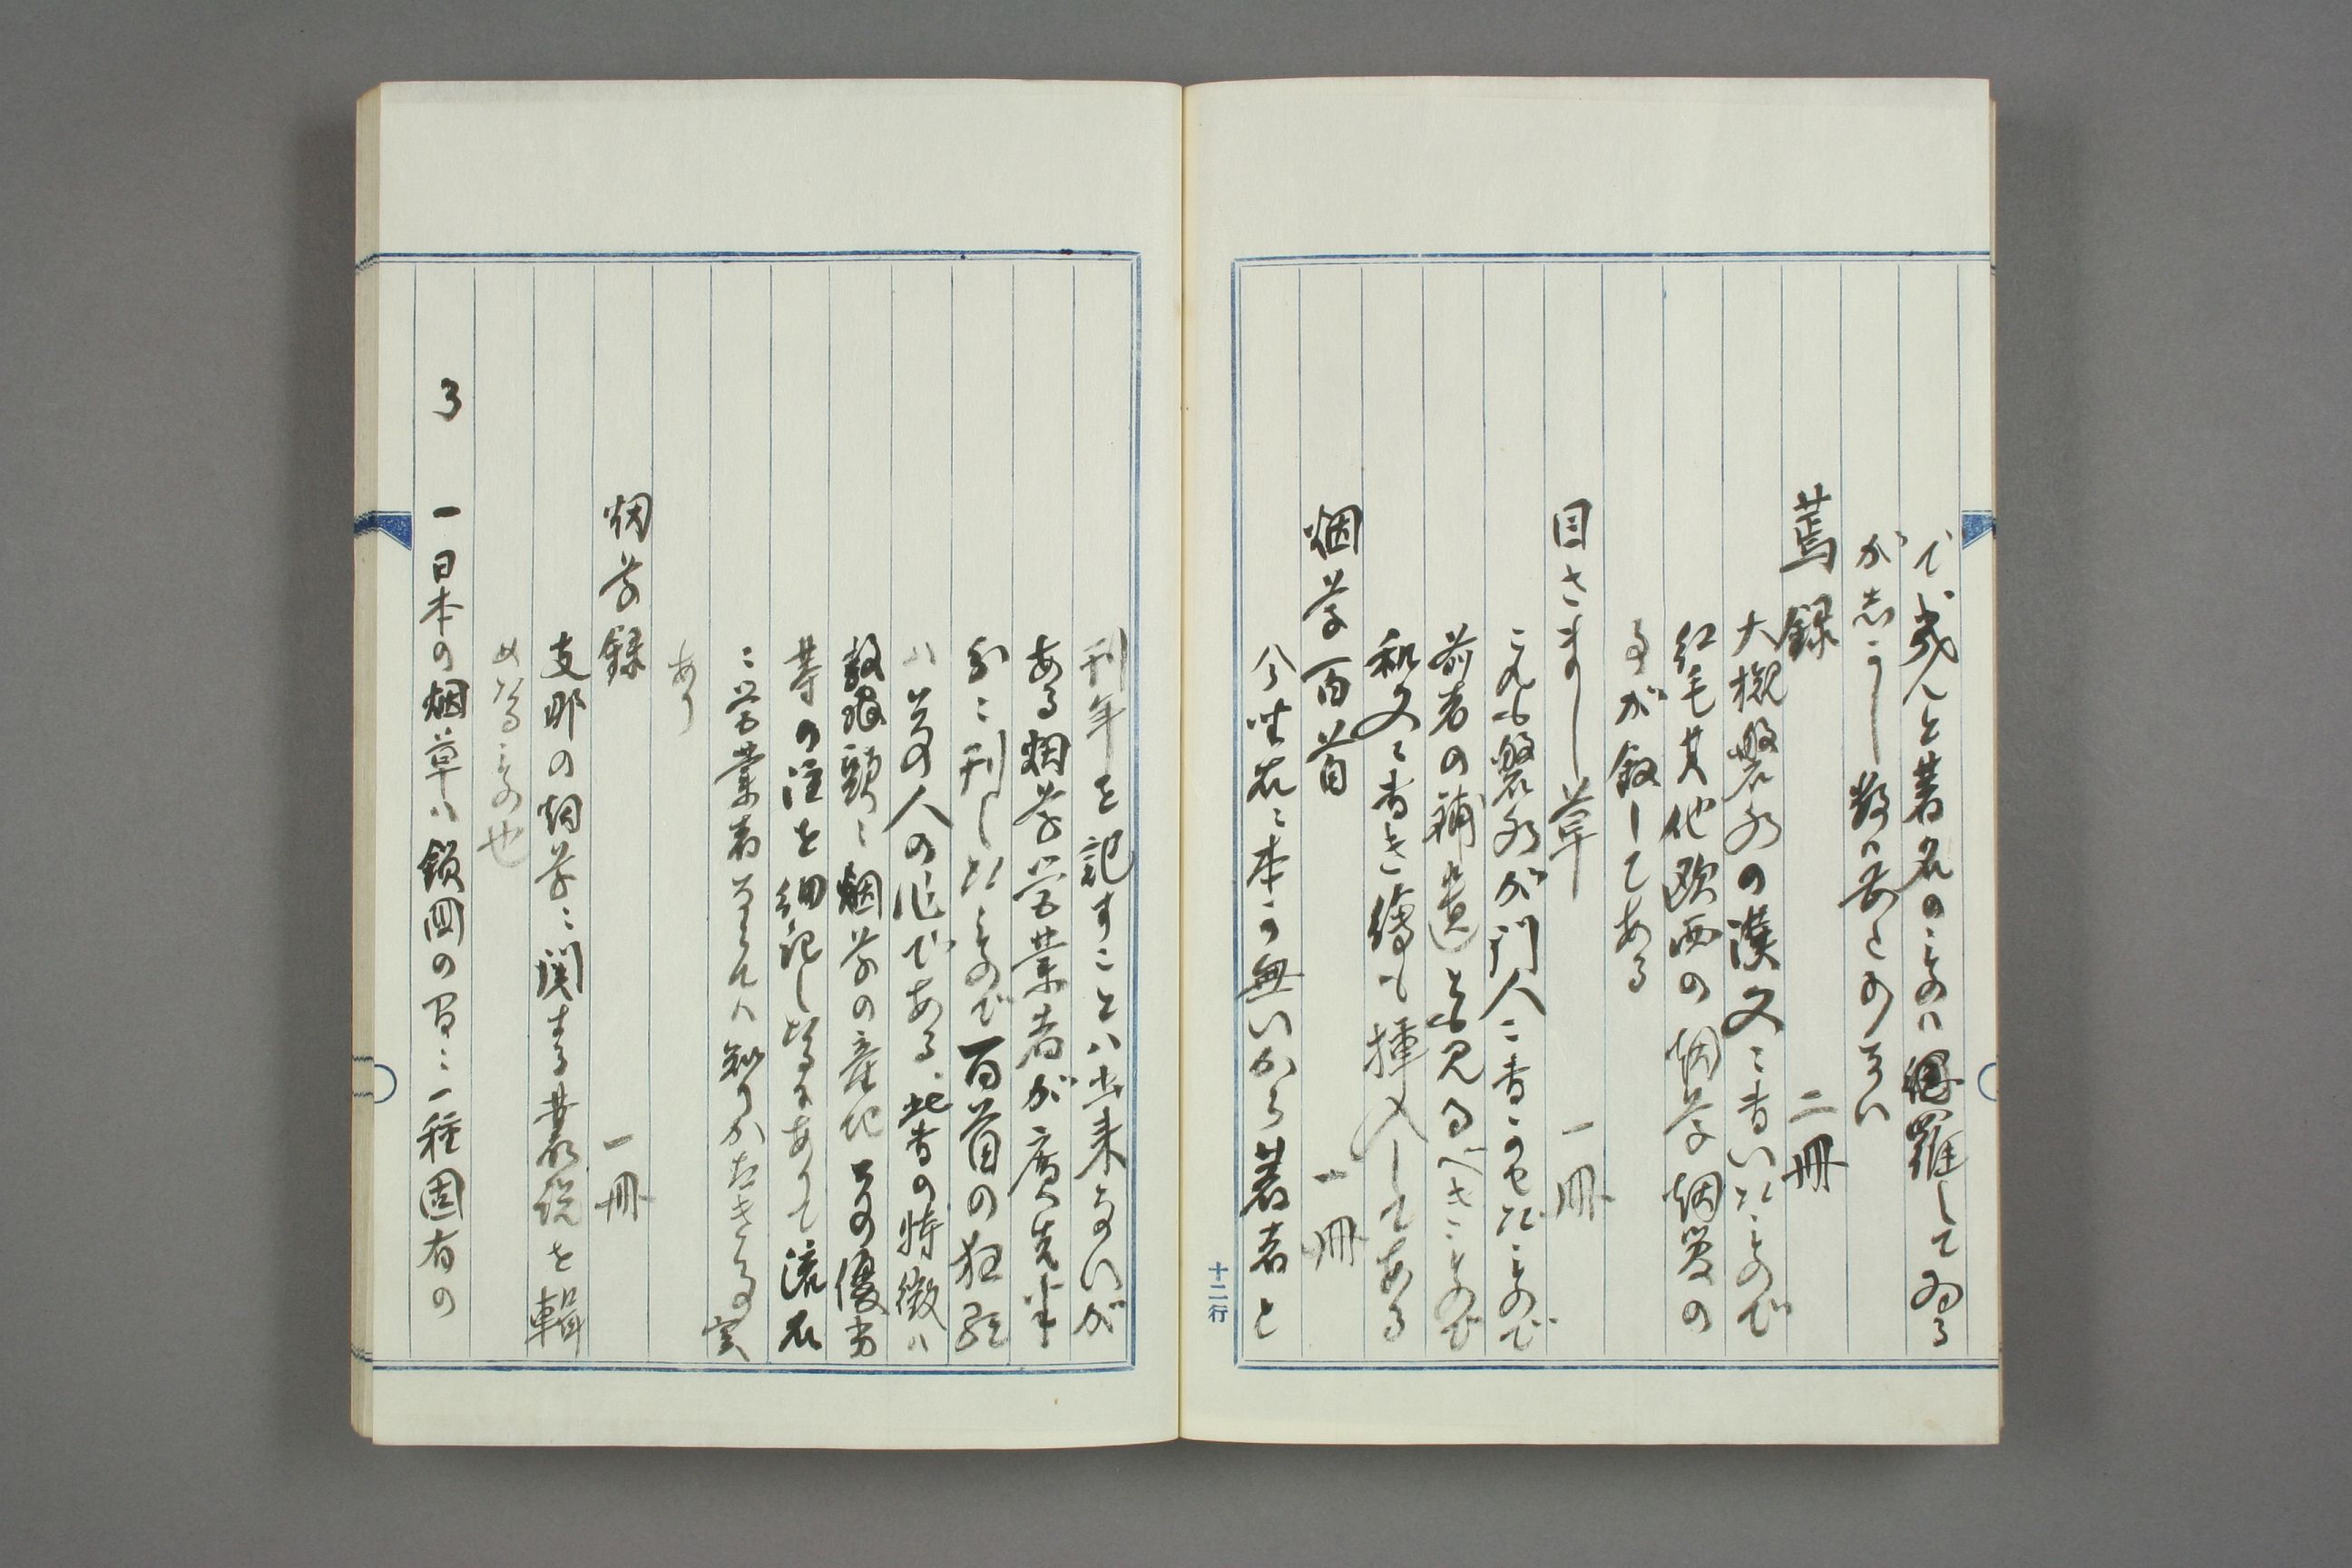 で殆んと著名のものハ網羅してゐる
がむつかし数ハ
蔫録 二冊
大槻磐水の漢文に書いたもので
紅毛其他欧西の烟草烟管の
事が叙してある
目さまし草 一冊
これも磐水が門人に書かせたもので
前者の補遺とも見るべきもので
和文に書き繪も挿入してある
烟草百首 一冊
今坐右に本が無いから著者と
十二行
刊年を記すことハ出来ないが
ある烟草営業者が廣告半
分に刊したもので百首の狂歌
ハ其の人の作である、此書の特徴ハ
鼇頭に烟草の産地其の優劣
等の註を細記したるにありて流石
に営業者ならてハ知りかたきもの実
あり
烟草録 一冊
支那の烟草に関する叢説を輯
めたるもの也
3 一日本の烟草ハ鎖国の間に一種固有の